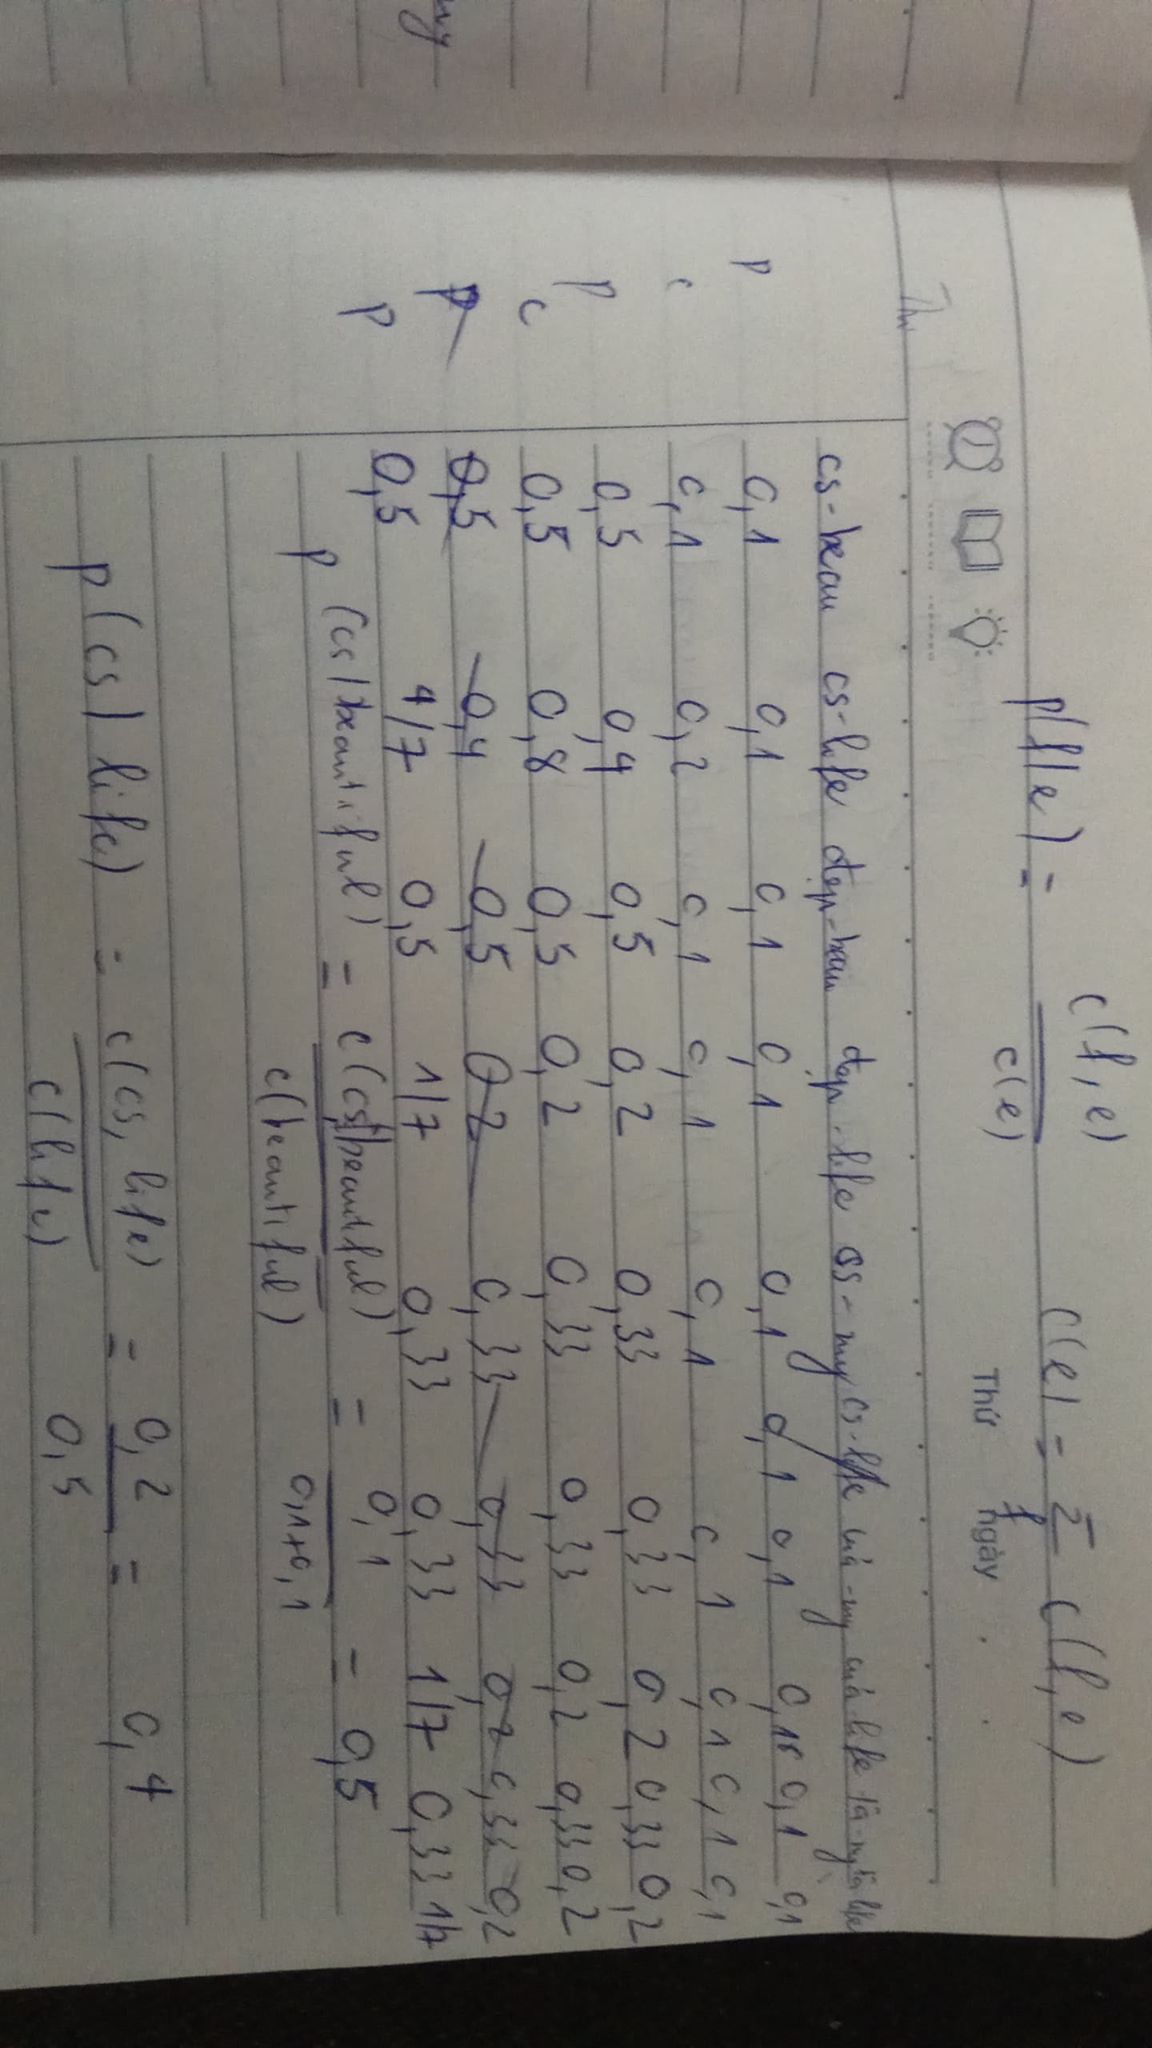 p(f|e) = c(f,e) / c(e) c(e) = Σ_f c(f,e)
Thứ ngày
cs-beau cs-life đẹp-beau đẹp-life cs-my cs-life của-my của-life là-my là life
p 0,1 0,1 0,1 0,1 0,1 0,1 0,1 0,1 0,1
c 0,1 0,2 0,1 0,1 0,1 0,1 0,1 0,1 0,1
p 0,5 0,4 0,5 0,2 0,33 0,33 0,2 0,33 0,2
c 0,5 0,8 0,5 0,2 0,33 0,33 0,2 0,33 0,2
p 0,5 0,4 0,5 0,2 0,33 0,33 0,2 0,33 0,2
p 0,5 4/7 0,5 1/7 0,33 0,33 1/7 0,33 1/7
p(cs|beautiful) = c(cs,beautiful) / c(beautiful) = 0,1 / 0,1+0,1 = 0,5
p(cs|life) = c(cs, life) / c(life) = 0,2 / 0,5 = 0,4
my